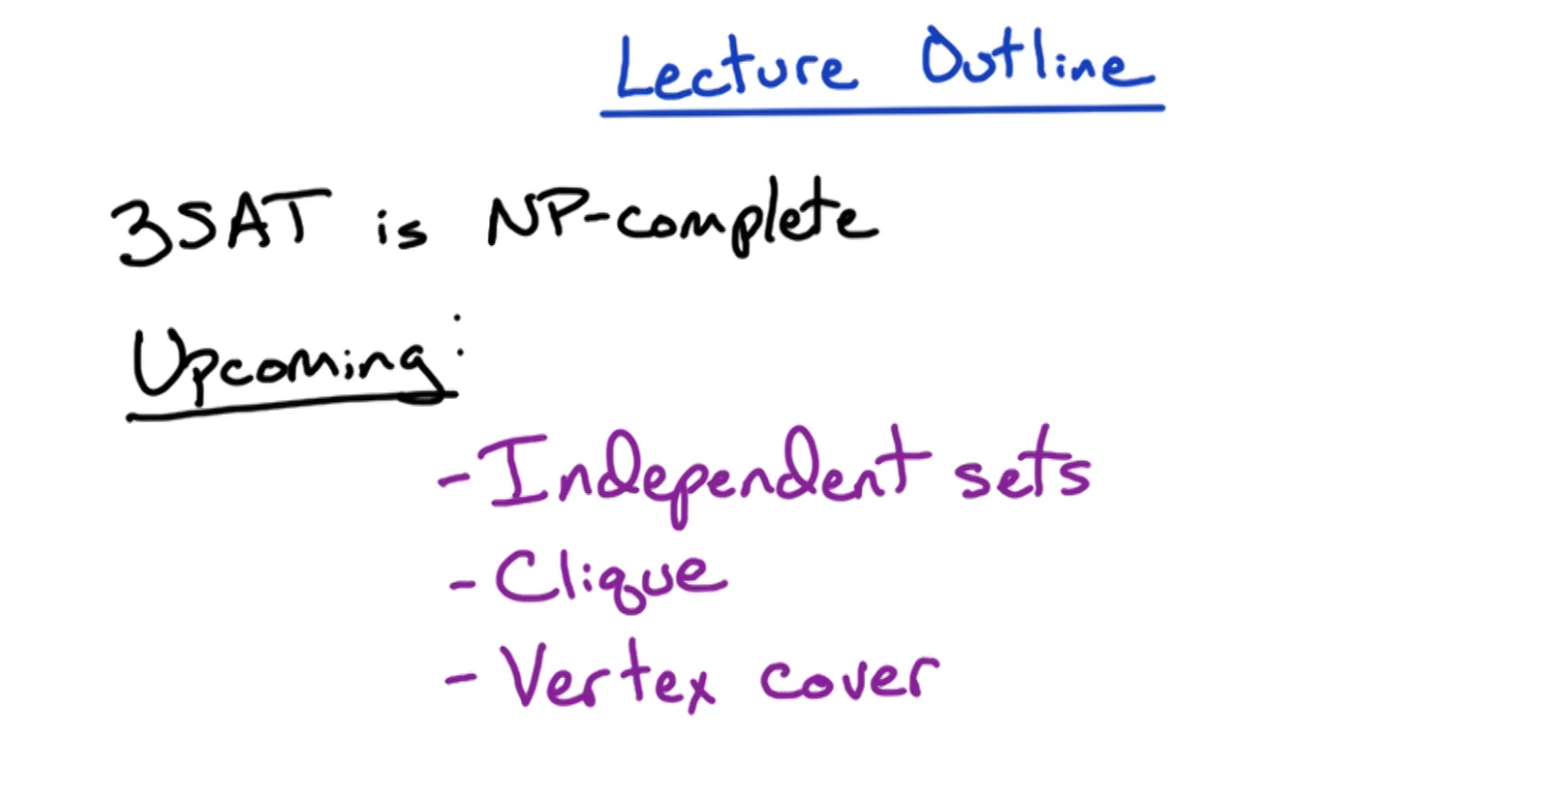 Lecture Outline
3SAT is NP-complete
Upcoming:
- Independent sets
- Clique
- Vertex cover